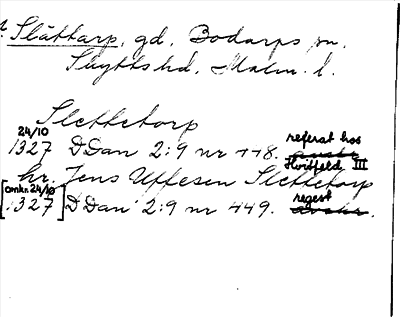 Slättarp, gd, Bodarps sn,
Skyttshd, Malm. l.
Slettetorp
24/10
1327 DDan 2:9 nr 448. avskr referat hos
Hvitfeld III
hr. Jens Uffesen Slettetorp
[omkr. 24/10
1327] DDan 2:9 nr 449. avskr. regest